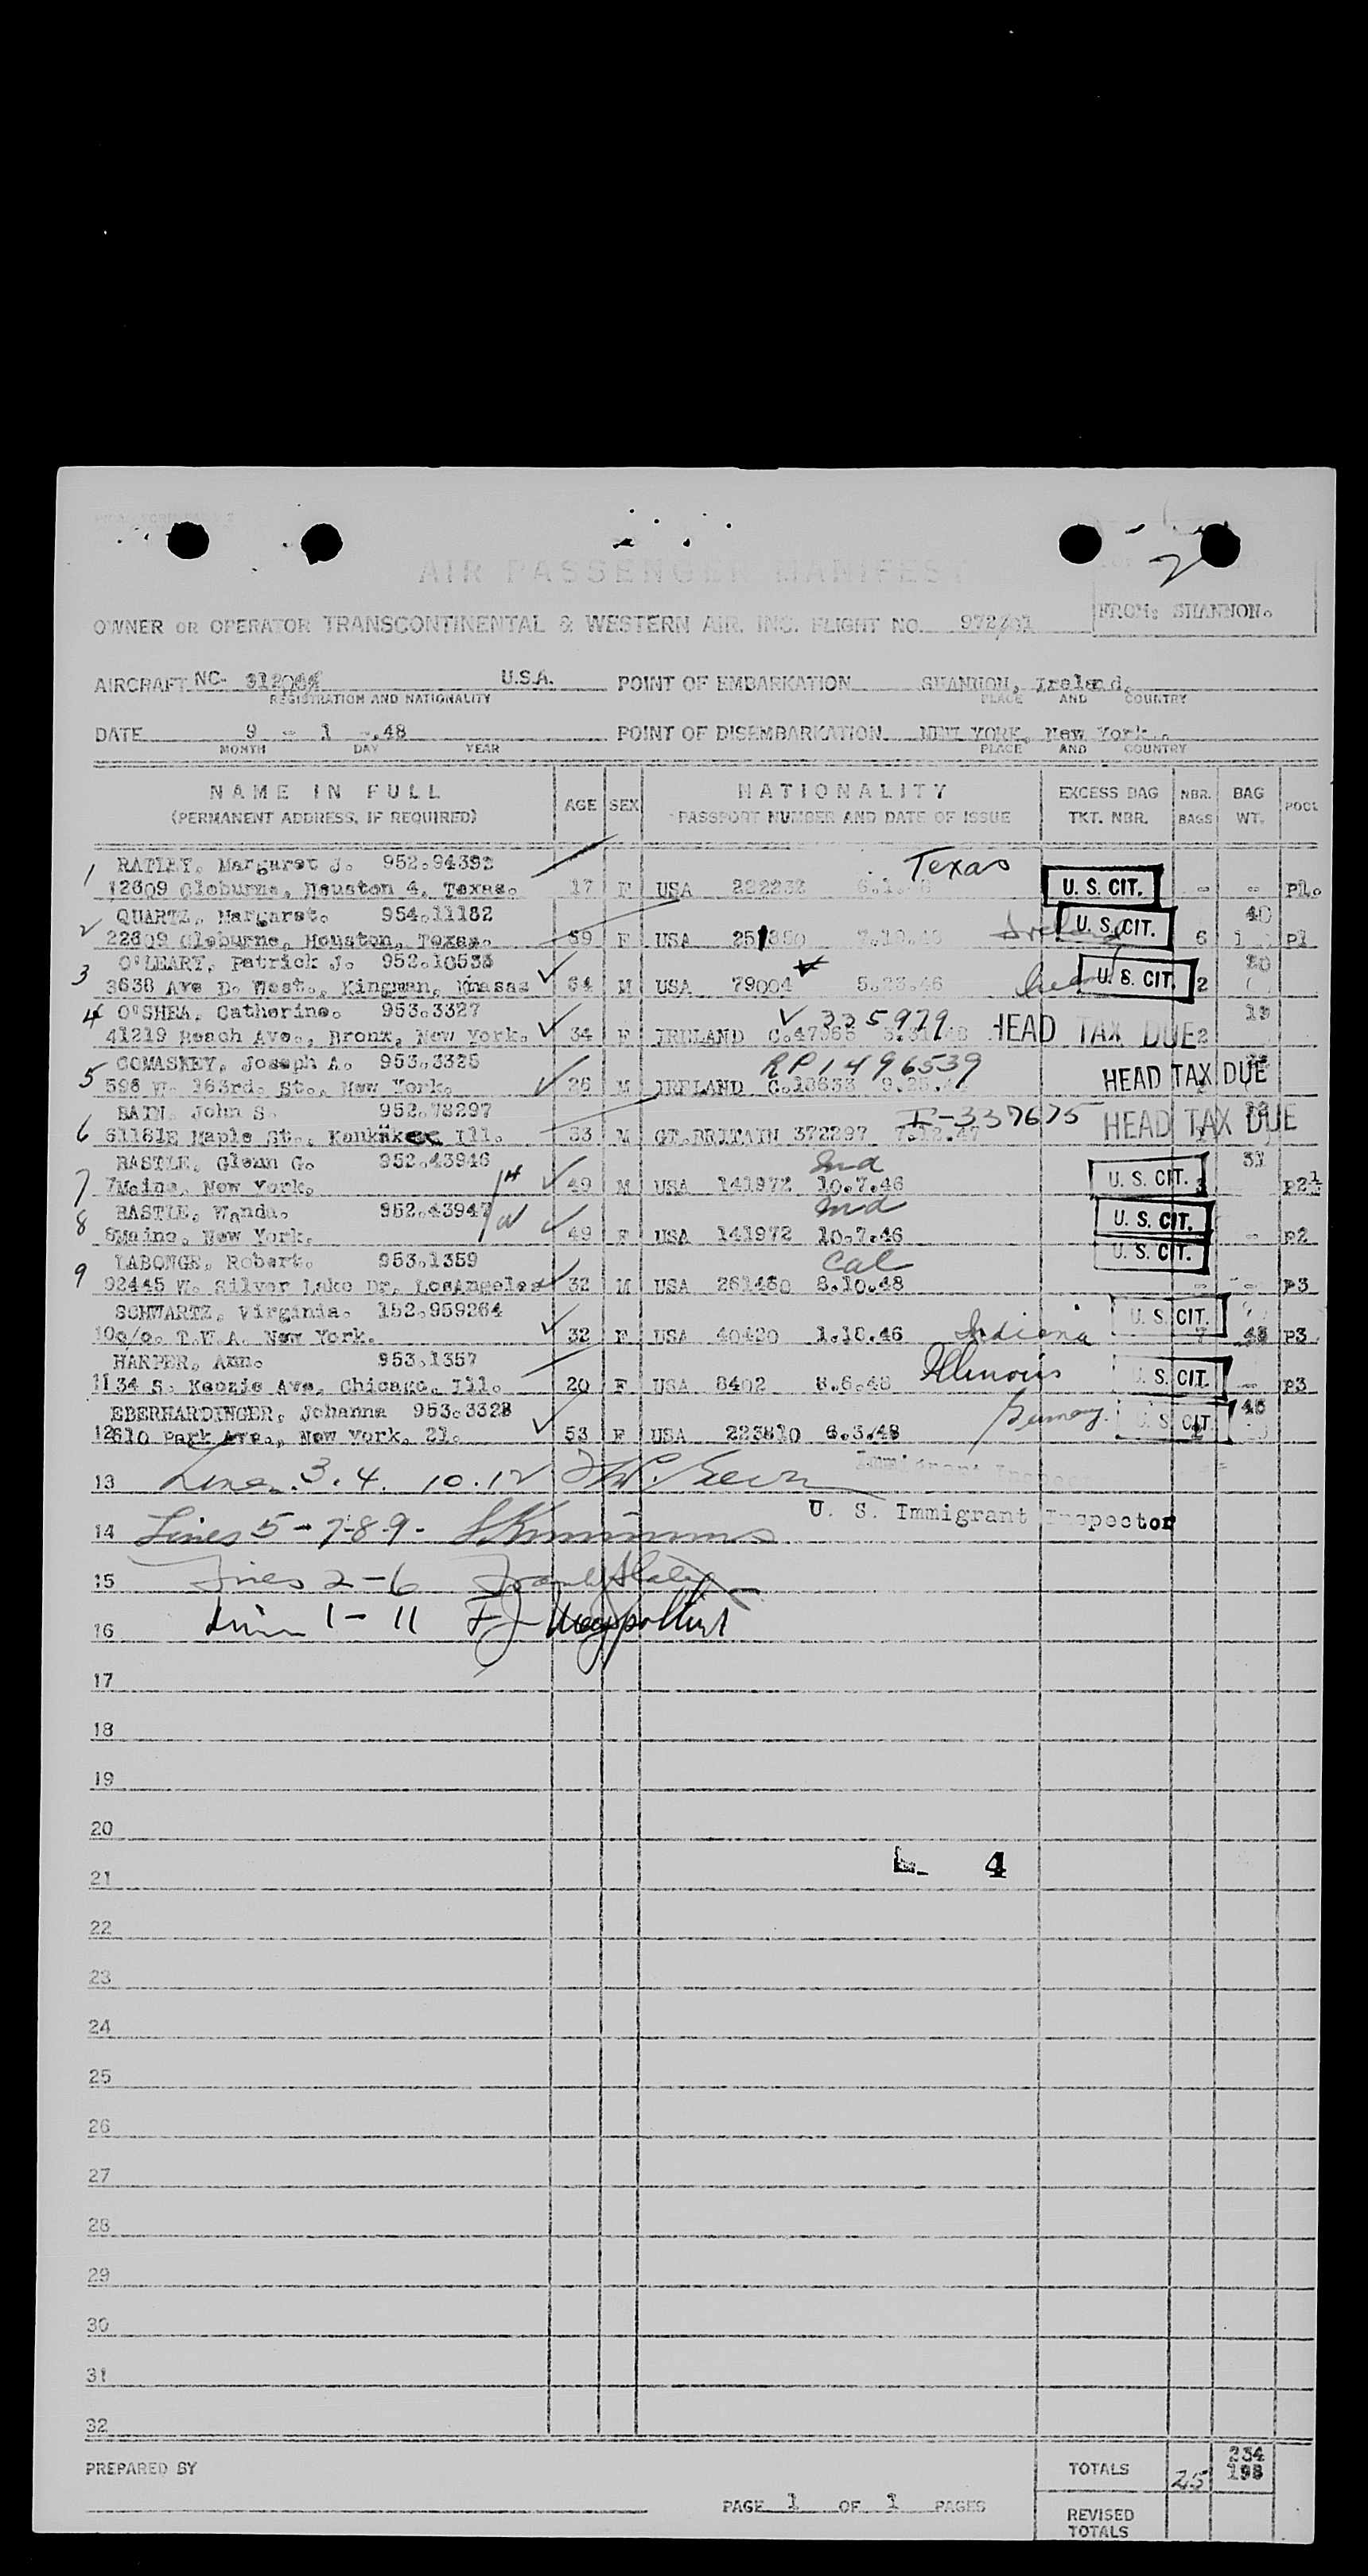 2
AIR PASSENGER MANIFEST
FROM: SHANNON.
OWNER OR OPERATOR TRANSCONTINENTAL & WESTERN AIR. INC. FLIGHT NO. 972/31
AIRCRAFT NC- U.S.A. POINT OF EMBARKATION SHANNON, Ireland.
REGISTRATION AND NATIONALITY PLACE AND COUNTRY
DATE 9 - 1 -.48 POINT OF DISEMBARKATION NEW YORK, New York.
MONTH DAY YEAR PLACE AND COUNTRY
NAME IN FULL AGE SEX NATIONALITY EXCESS BAG NBR. BAG POOL
(PERMANENT ADDRESS, IF REQUIRED) PASSPORT NUMBER AND DATE OF ISSUE TKT. NBR. BAGS WT.
1 Margaret J. 952.94392 Texas
12609 Cleburne, Houston 4, Texas. 17 F USA 222232 U. S. CIT. - - P1.
2 QUARTZ, Margaret. 954.11182 40
22609 Cleburne, Houston, Texas. 59 F USA Ireland U. S. CIT. 6 P1
3 O'LEARY, Patrick J. 952.10533
3638 Ave D. West., Kingman, Knasas 64 M USA 79004 5.23.46 U. S. CIT. 2
4 O'SHEA, Catherine. 953.3327 335979 19
41219 Beach Ave., Bronx, New York. 34 F IRELAND C.47365 HEAD TAX DUE 2
5 COMASKEY, Joseph A. 953.3325 RP1496539
598 W. 163rd. St., New York. 26 M IRELAND C.18633 HEAD TAX DUE
6 BAIN. John S. 952.78297 I-337675
61181E Maple St., Kankakee Ill. 53 M GT.BRITAIN 372297 7.12.47 HEAD TAX DUE
7 BASTLE, Glenn G. 952.43946 H Ind 31
7Maine, New York. 49 M USA 141972 10.7.46 U. S. CIT. P2½
8 BASTLE, Wanda. 952.43947 W Ind
8Maine, New York. 49 F USA 141972 10.7.46 U. S. CIT. - P2
9 LABONGE, Robert. 953.1359 Cal U. S. CIT.
92445 W. Silver Lake Dr. LosAngeles 32 M USA 261480 8.10.48 - - P3
SCHWARTZ, Virginia. 152.959264
10c/o. T.W.A. New York. 32 F USA 40420 1.18.46 Indiana U. S. CIT. 7 48 P3
HARPER, Ann. 953.1357 Illinois
1134 S. Kedzie Ave, Chicago, Ill. 20 F USA 8402 8.6.48 U. S. CIT. - P3
EBERHARDINGER, Johanna 953.3328 Germany 48
12610 Park Ave., New York. 21. 53 F USA 223810 6.3.48 U. S. CIT.
13 Lines 3. 4. 10. 12 Immigrant Inspector
14 Lines 5-7-8-9- U. S. Immigrant Inspector
15 Lines 2-6
16 Lines 1-11
17
18
19
20
21 4
22
23
24
25
26
27
28
29
30
31
32
PREPARED BY TOTALS 25 234
198
PAGE 1 OF 1 PAGES REVISED
TOTALS